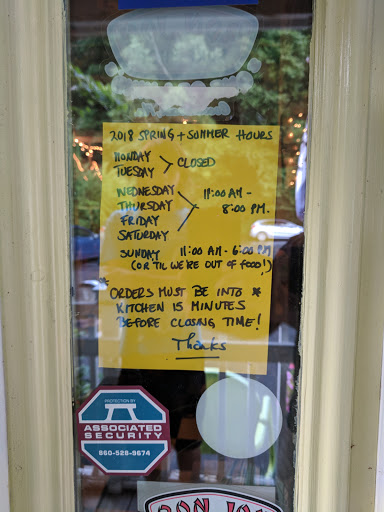 2018 SPRING + SUMMER HOURS
MONDAY
TUESDAY
CLOSED
WEDNESDAY
THURSDAY
FRIDAY
SATURDAY
11:00 AM -
8:00 PM.
SUNDAY 11:00 AM - 6:00 PM
(OR TIL WE'RE OUT OF FOOD!)
* ORDERS MUST BE INTO *
KITCHEN 15 MINUTES
BEFORE CLOSING TIME!
Thanks
PROTECTION BY
ASSOCIATED
SECURITY
860-528-5674